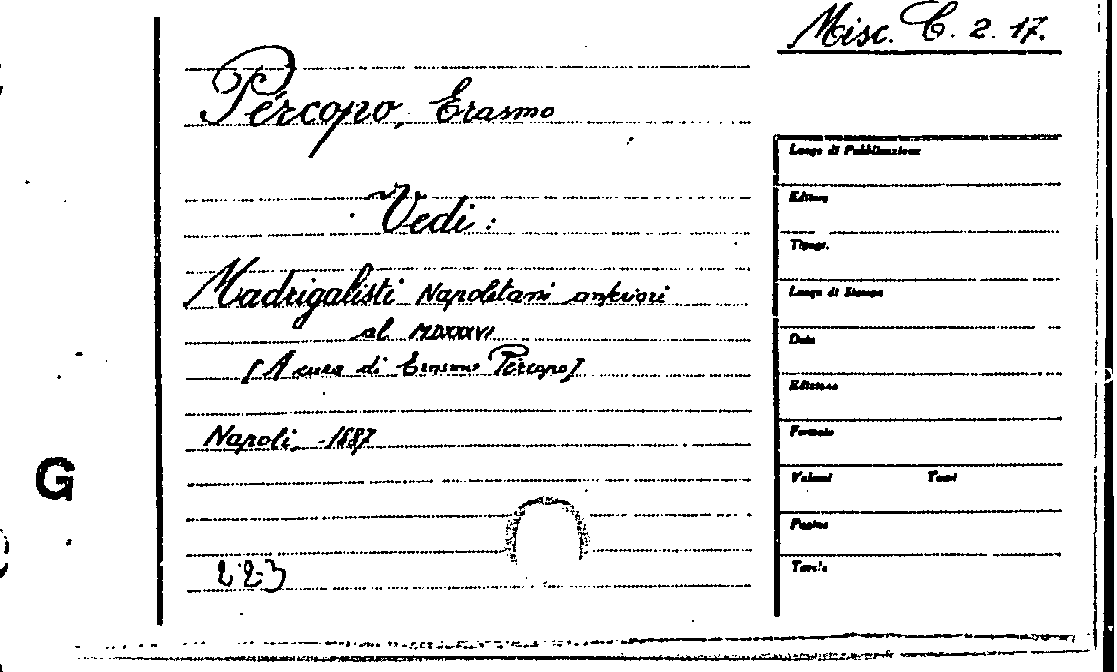 Misc. C. 2. 17.
Pèrcopo, Erasmo
Vedi:
Madrigalisti Napoletani anteriori
al MDXXXVI
[A cura di Erasmo Pèrcopo]
Napoli, -1887
223
G
Luogo di Pubblicazione
Editore
Tipogr.
Luogo di Stampa
Data
Edizione
Formato
Volumi Tomi
Pagine
Tavole